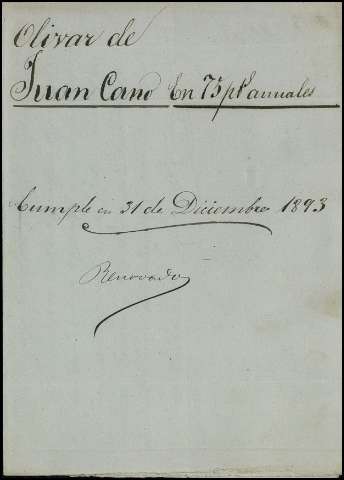 Olivar de
Juan Cano En 75 pts annales
Cumple en 31 de Diciembre 1893
Renovado